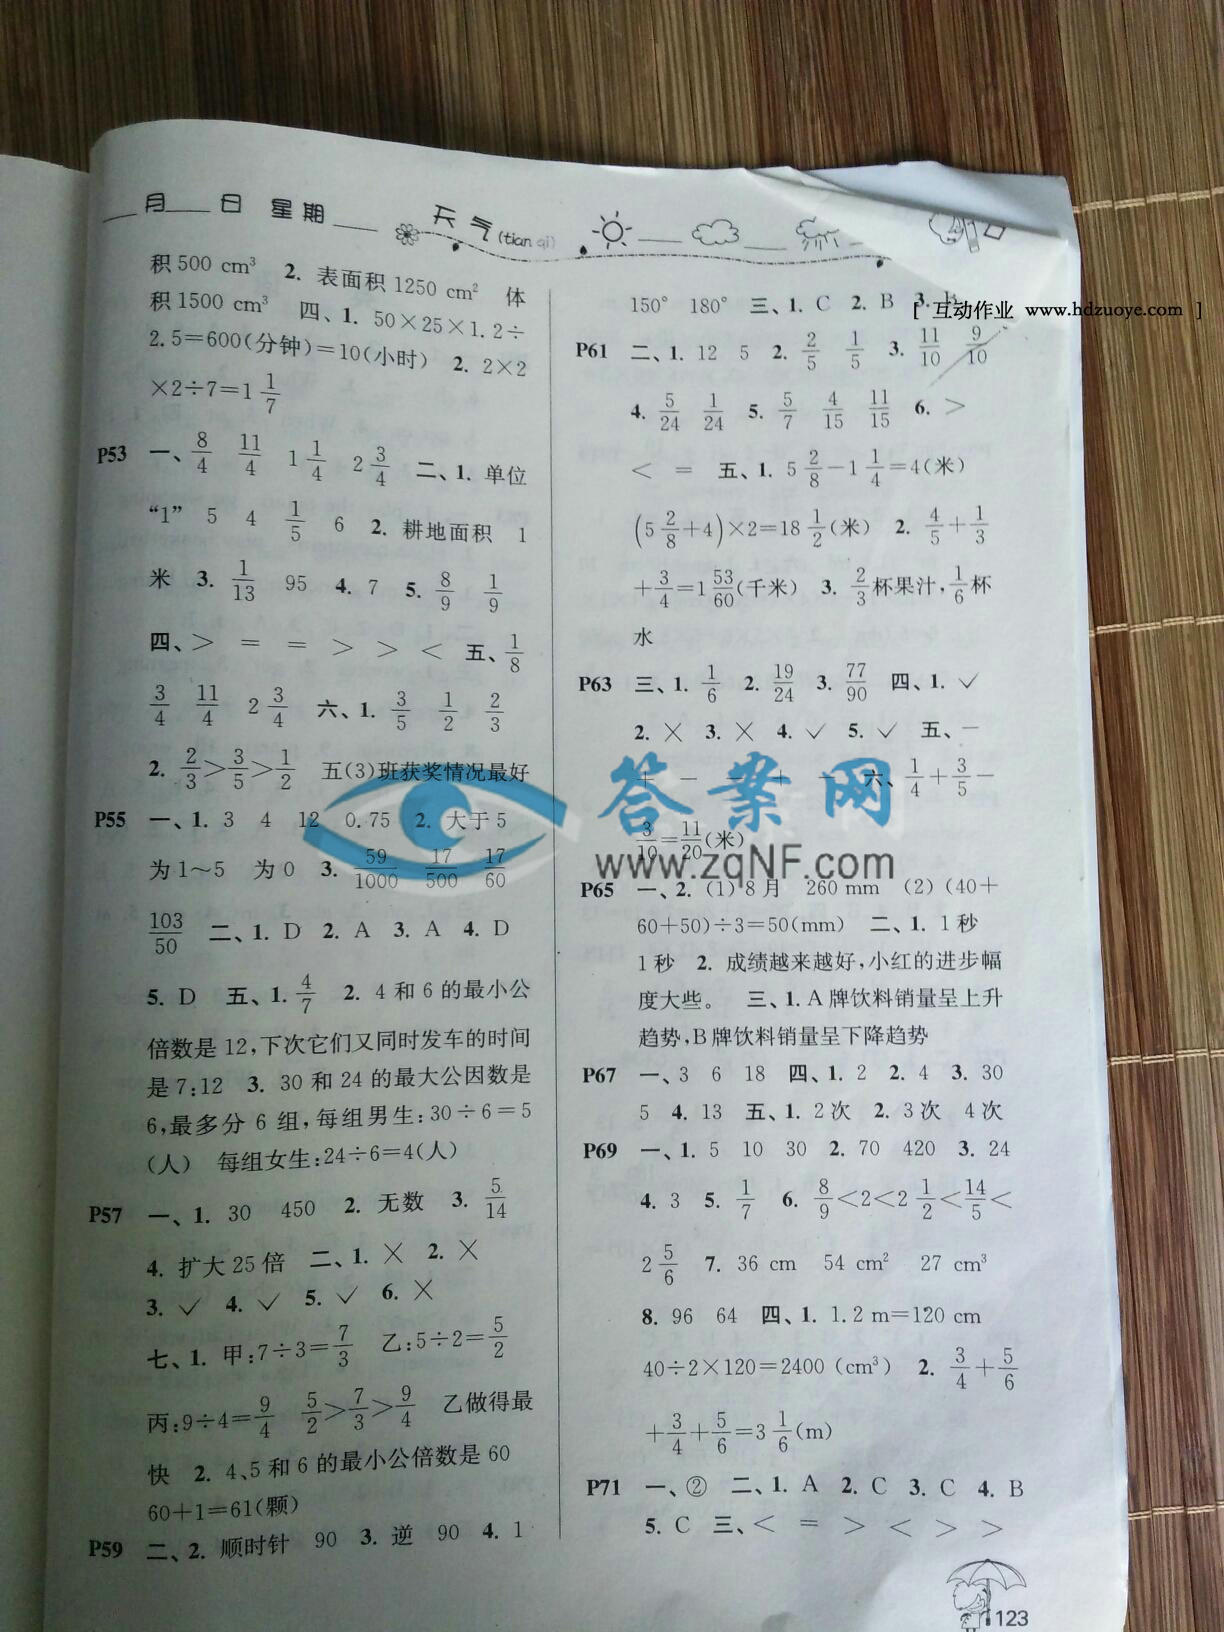 月 日 星期 天气(tian qi)
[ 互动作业 www.hdzuoye.com ]
积500 cm³ 2. 表面积1250 cm² 体
积1500 cm³ 四、1. 50×25×1.2÷
2.5=600(分钟)=10(小时) 2. 2×2
×2÷7=1 1/7
P53 一、8/4 11/4 1 1/4 2 3/4 二、1. 单位
“1” 5 4 1/5 6 2. 耕地面积 1
米 3. 1/13 95 4. 7 5. 8/9 1/9
四、> = = > > < 五、1/8
3/4 11/4 2 3/4 六、1. 3/5 1/2 2/3
2. 2/3>3/5>1/2 五(3)班获奖情况最好
P55 一、1. 3 4 12 0.75 2. 大于5
为1~5 为0 3. 59/1000 17/500 17/60
103/50 二、1. D 2. A 3. A 4. D
5. D 五、1. 4/7 2. 4和6的最小公
倍数是12,下次它们又同时发车的时间
是7:12 3. 30和24的最大公因数是
6,最多分6组,每组男生:30÷6=5
(人) 每组女生:24÷6=4(人)
P57 一、1. 30 450 2. 无数 3. 5/14
4. 扩大25倍 二、1. × 2. ×
3. ✓ 4. ✓ 5. ✓ 6. ×
七、1. 甲:7÷3=7/3 乙:5÷2=5/2
丙:9÷4=9/4 5/2>7/3>9/4 乙做得最
快 2. 4、5和6的最小公倍数是60
60+1=61(颗)
P59 二、2. 顺时针 90 3. 逆 90 4. 1
150° 180° 三、1. C 2. B 3. B
P61 二、1. 12 5 2. 2/5 1/5 3. 11/10 9/10
4. 5/24 1/24 5. 5/7 4/15 11/15 6. >
< = 五、1. 5 2/8-1 1/4=4(米)
(5 2/8+4)×2=18 1/2(米) 2. 4/5+1/3
+3/4=1 53/60(千米) 3. 2/3杯果汁,1/6杯
水
P63 三、1. 1/6 2. 19/24 3. 77/90 四、1. ✓
2. × 3. × 4. ✓ 5. ✓ 五、-
+ - - + - 六、1/4+3/5-
3/10=11/20(米)
答案网
www.zqNF.com
P65 一、2. (1)8月 260 mm (2)(40+
60+50)÷3=50(mm) 二、1. 1秒
1秒 2. 成绩越来越好,小红的进步幅
度大些。 三、1. A牌饮料销量呈上升
趋势,B牌饮料销量呈下降趋势
P67 一、3 6 18 四、1. 2 2. 4 3. 30
5 4. 13 五、1. 2次 2. 3次 4次
P69 一、1. 5 10 30 2. 70 420 3. 24
4. 3 5. 1/7 6. 8/9<2<2 1/2<14/5<
2 5/6 7. 36 cm 54 cm² 27 cm³
8. 96 64 四、1. 1.2 m=120 cm
40÷2×120=2400 (cm³) 2. 3/4+5/6
+3/4+5/6=3 1/6(m)
P71 一、② 二、1. A 2. C 3. C 4. B
5. C 三、< = > < > >
123